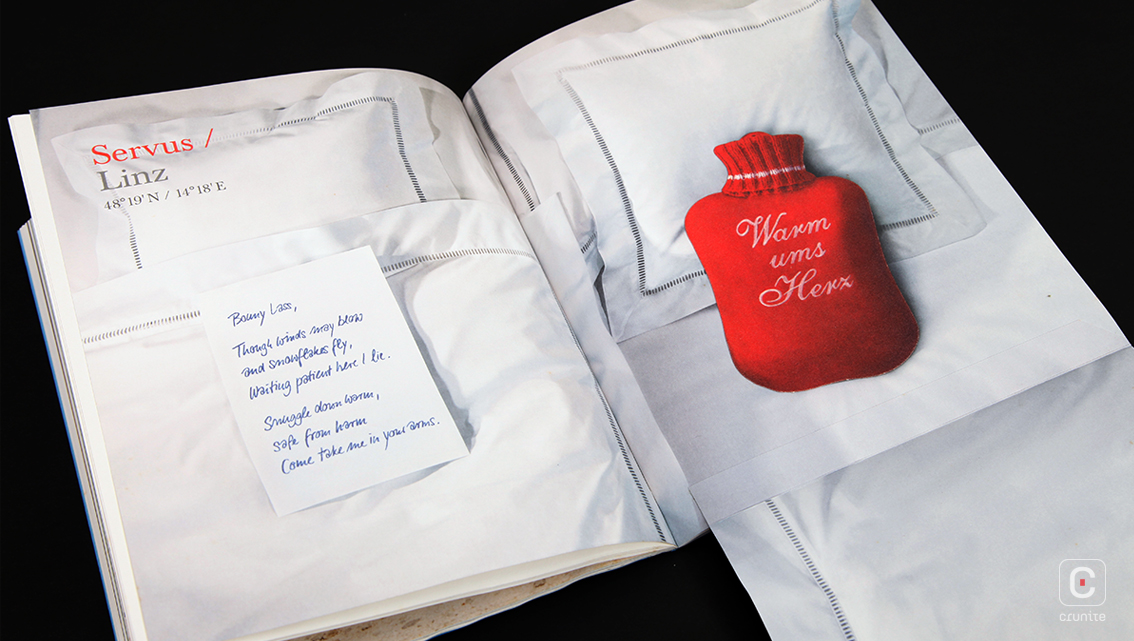 Servus /
Linz
48°19' N / 14°18' E
Bonny Lass,
Though winds may blow
and snowflakes fly,
Waiting patient here I lie.
Snuggle down warm,
safe from harm
Come take me in your arms.
Warm
ums
Herz
C
crunite